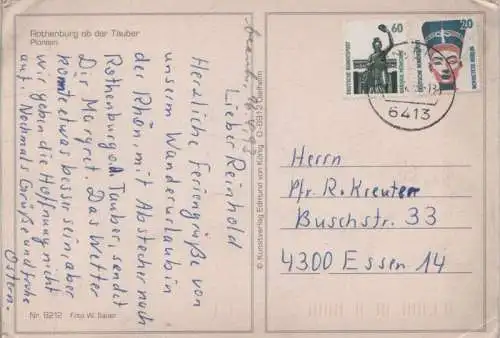 Rothenburg ob der Tauber
Plönlein
Lieber Reinhold
Herzliche Feriengrüße von
unserm Wanderurlaub in
der Rhön, mit Abstecher nach
Rothenburg o. d. Tauber, sendet
Dir Margret. Das Wetter
könnte etwas besser sein, aber
wir geben die Hoffnung nicht
auf. Nochmals Grüße und frohe
Ostern.
Nr. 9212 Foto W. Sauer
© Kunstverlag Edmund von König
Dielheim
60
DEUTSCHE BUNDESPOST
20
DEUTSCHE BUNDESPOST
6413
Herrn
Pfr. R. Kreuter
Buschstr. 33
4300 Essen 14